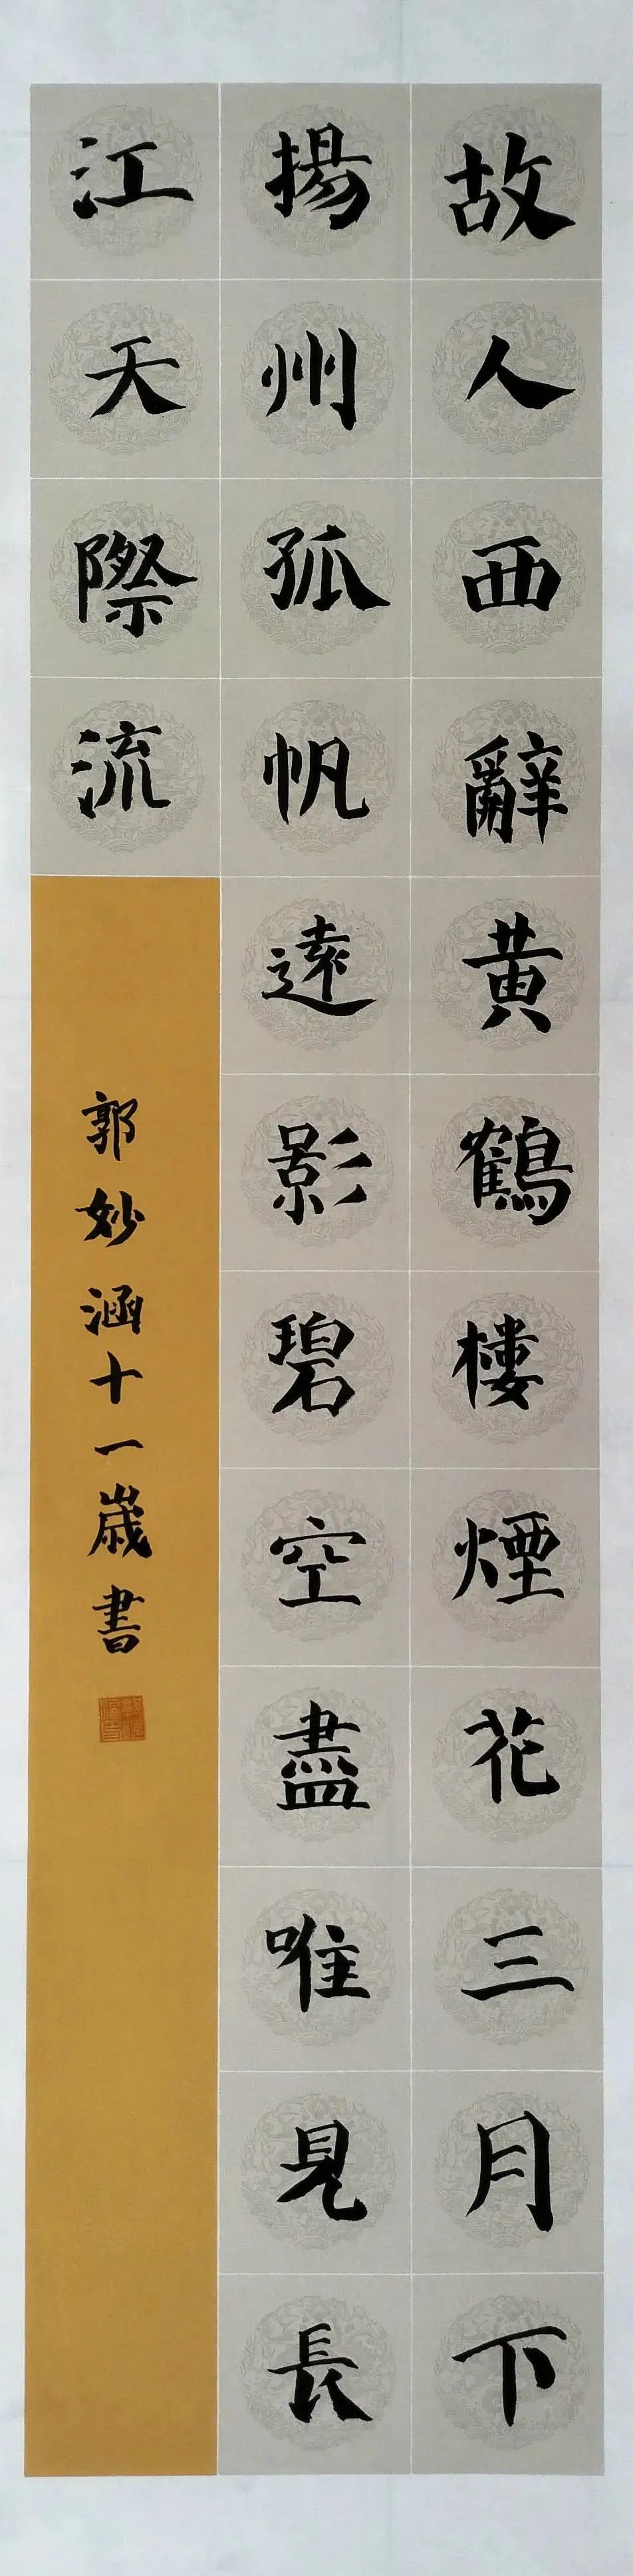 故人西辭黃鶴樓煙花三月下
揚州孤帆遠影碧空盡唯見長
江天際流
郭妙涵十一歲書